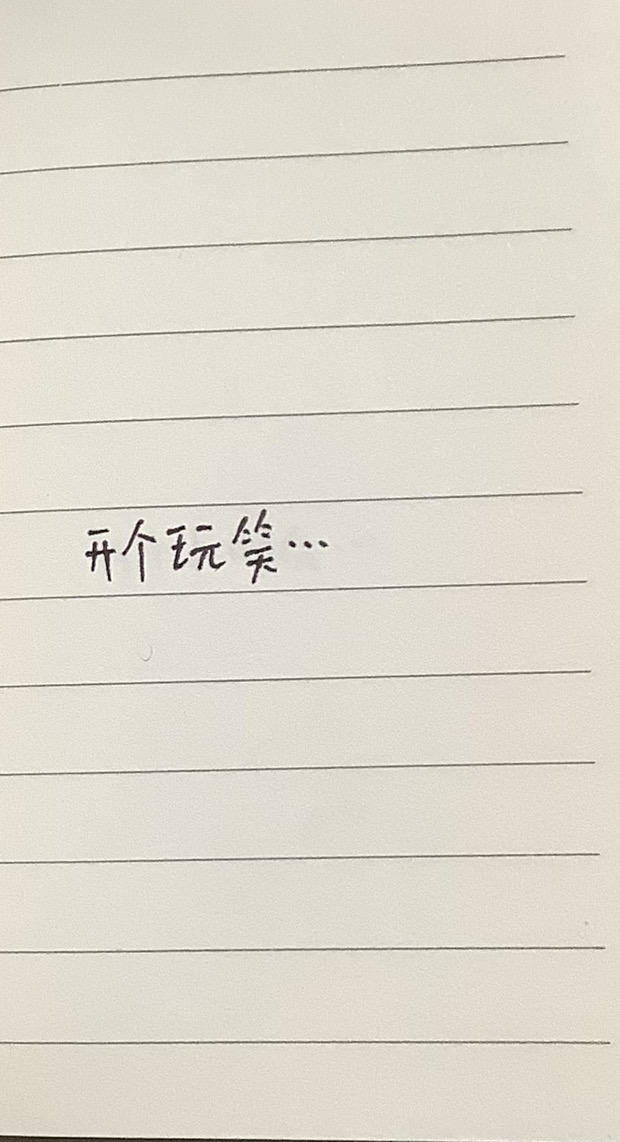 开个玩笑…